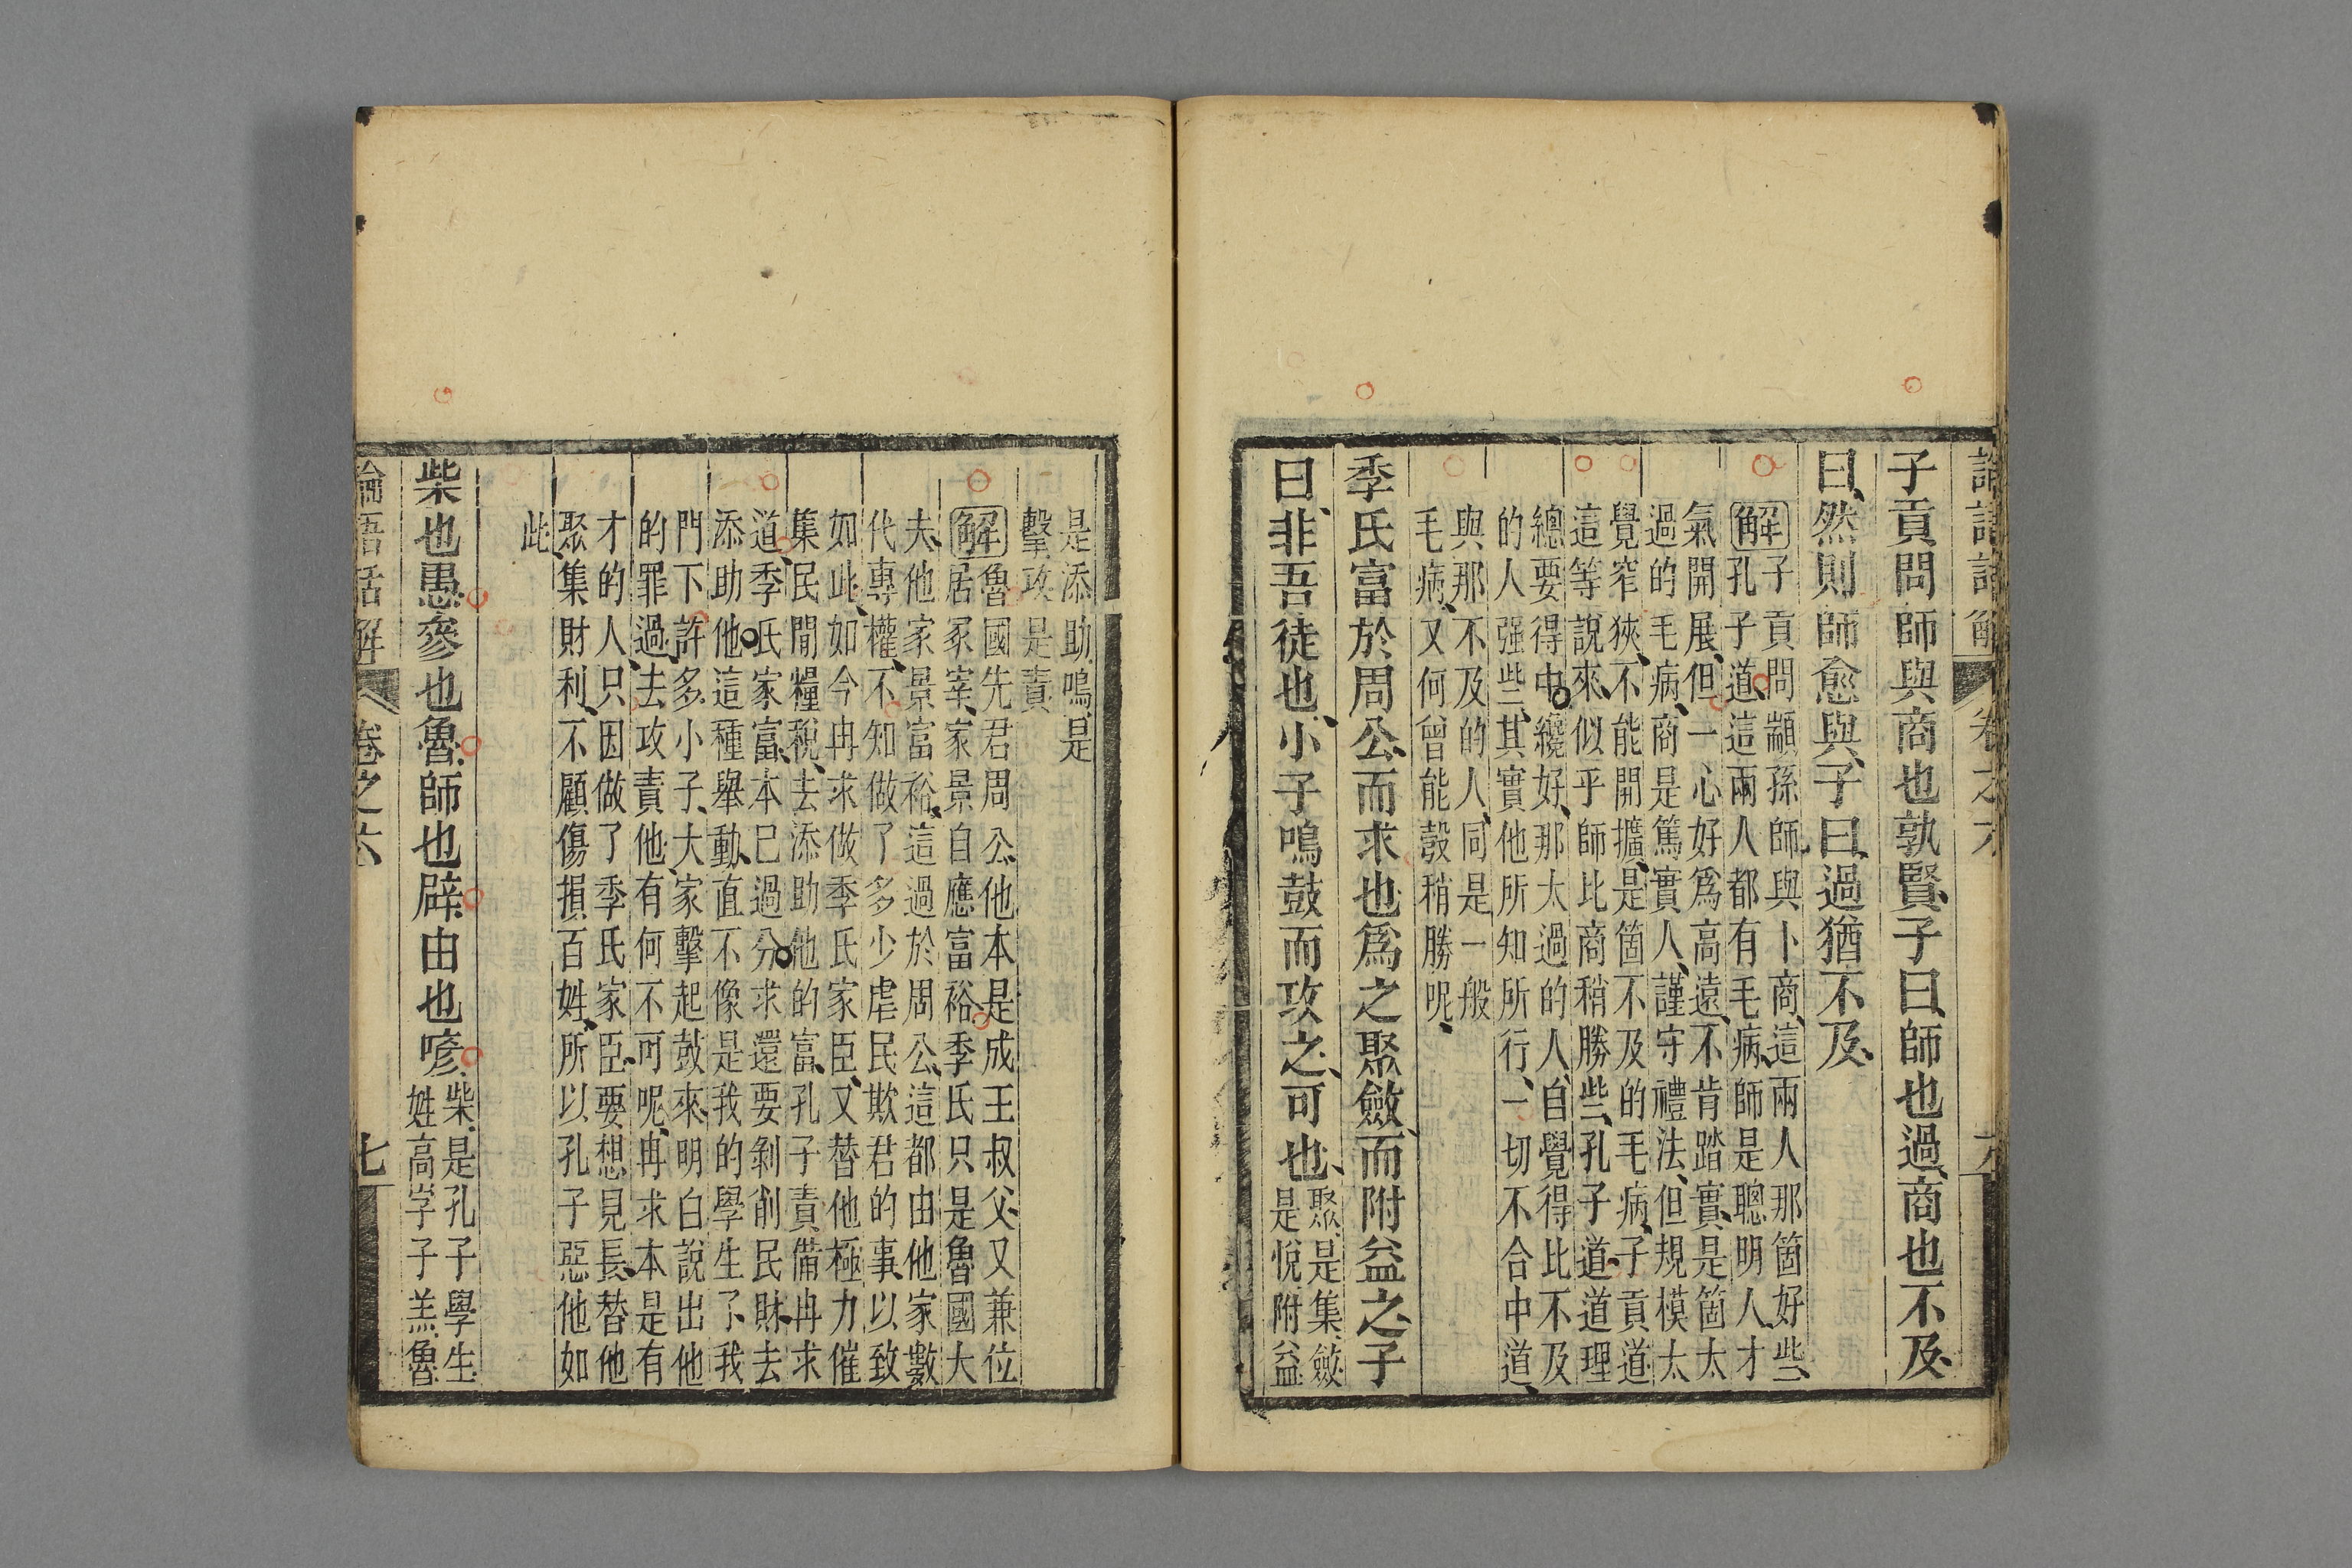 論語話解 卷之六 六
子貢問師與商也孰賢、子曰、師也過、商也不及、
曰、然則師愈與、子曰、過猶不及、
解子貢問顓孫師、與卜商、這兩人那箇好些、
孔子道、這兩人都有毛病、師是聰明人、才
氣開展、但一心好爲高遠、不肯踏實、是箇太
過的毛病、商是篤實人、謹守禮法、但規模太
覺窄狹、不能開擴、是箇不及的毛病、子貢道
這等說來、似乎師比商稍勝些、孔子道、道理
總要得中、纔好、那太過的人、自覺得比不及
的人强些、其實他所知所行、一切不合中道、
與那不及的人、同是一般
毛病、又何曾能彀稍勝呢、
季氏富於周公、而求也爲之聚斂、而附益之、子
曰、非吾徒也、小子鳴鼓而攻之、可也、
聚、是集、斂
是悅附益
是添助、鳴、是
擊、攻、是責
解魯國先君周公、他本是成王叔父、又兼位
居冢宰、家景自應富裕、季氏只是魯國大
夫、他家景富裕、這過於周公、這都由他家數
代專權、不知做了多少虐民欺君的事、以致
如此、如今冉求做季氏家臣、又替他極力催
集民間糧稅、去添助他的富、孔子責備冉求
道、季氏家富、本已過分、求還要剝削民財、去
添助他、這種舉動、直不像是我的學生了、我
門下許多小子、大家擊起鼓來、明白說出他
的罪過、去攻責他、有何不可呢、冉求本是有
才的人、只因做了季氏家臣、要想見長、替他
聚集財利、不顧傷損百姓、所以孔子惡他如
此、
柴也愚、參也魯、師也辟、由也喭、
柴、是孔子學生
姓高字子羔、魯
論語話解 卷之六 七